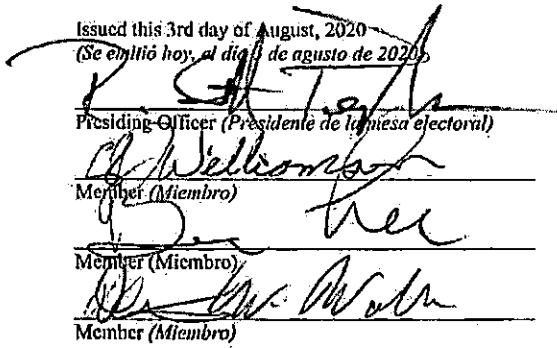 Issued this 3rd day of August, 2020
(Se emitió hoy, al día 3 de agusto de 2020)
Presiding Officer (Presidente de la mesa electoral)
Williamson
Member (Miembro)
Member (Miembro)
Member (Miembro)